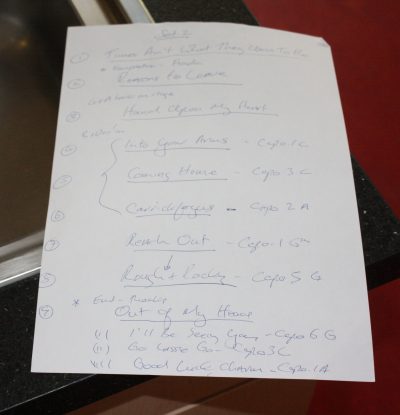 Set 2
① Times Ain't What They Used To Be
② Reasons to Leave
③ Hand Upon My Heart
④ Into Your Arms - Capo 1 C
⑤ Coming Home - Capo 3 C
⑥ - Capo 2 A
⑦ Reach Out - Capo 1 G
8 Rough + Rocky - Capo 5 G
* End -
⑨ Out of My House
(i) I'll Be Seeing You - Capo 6 G
(ii) Go Lassie Go - Capo 3 C
(iii) Good Luck Charm - Capo 1 A